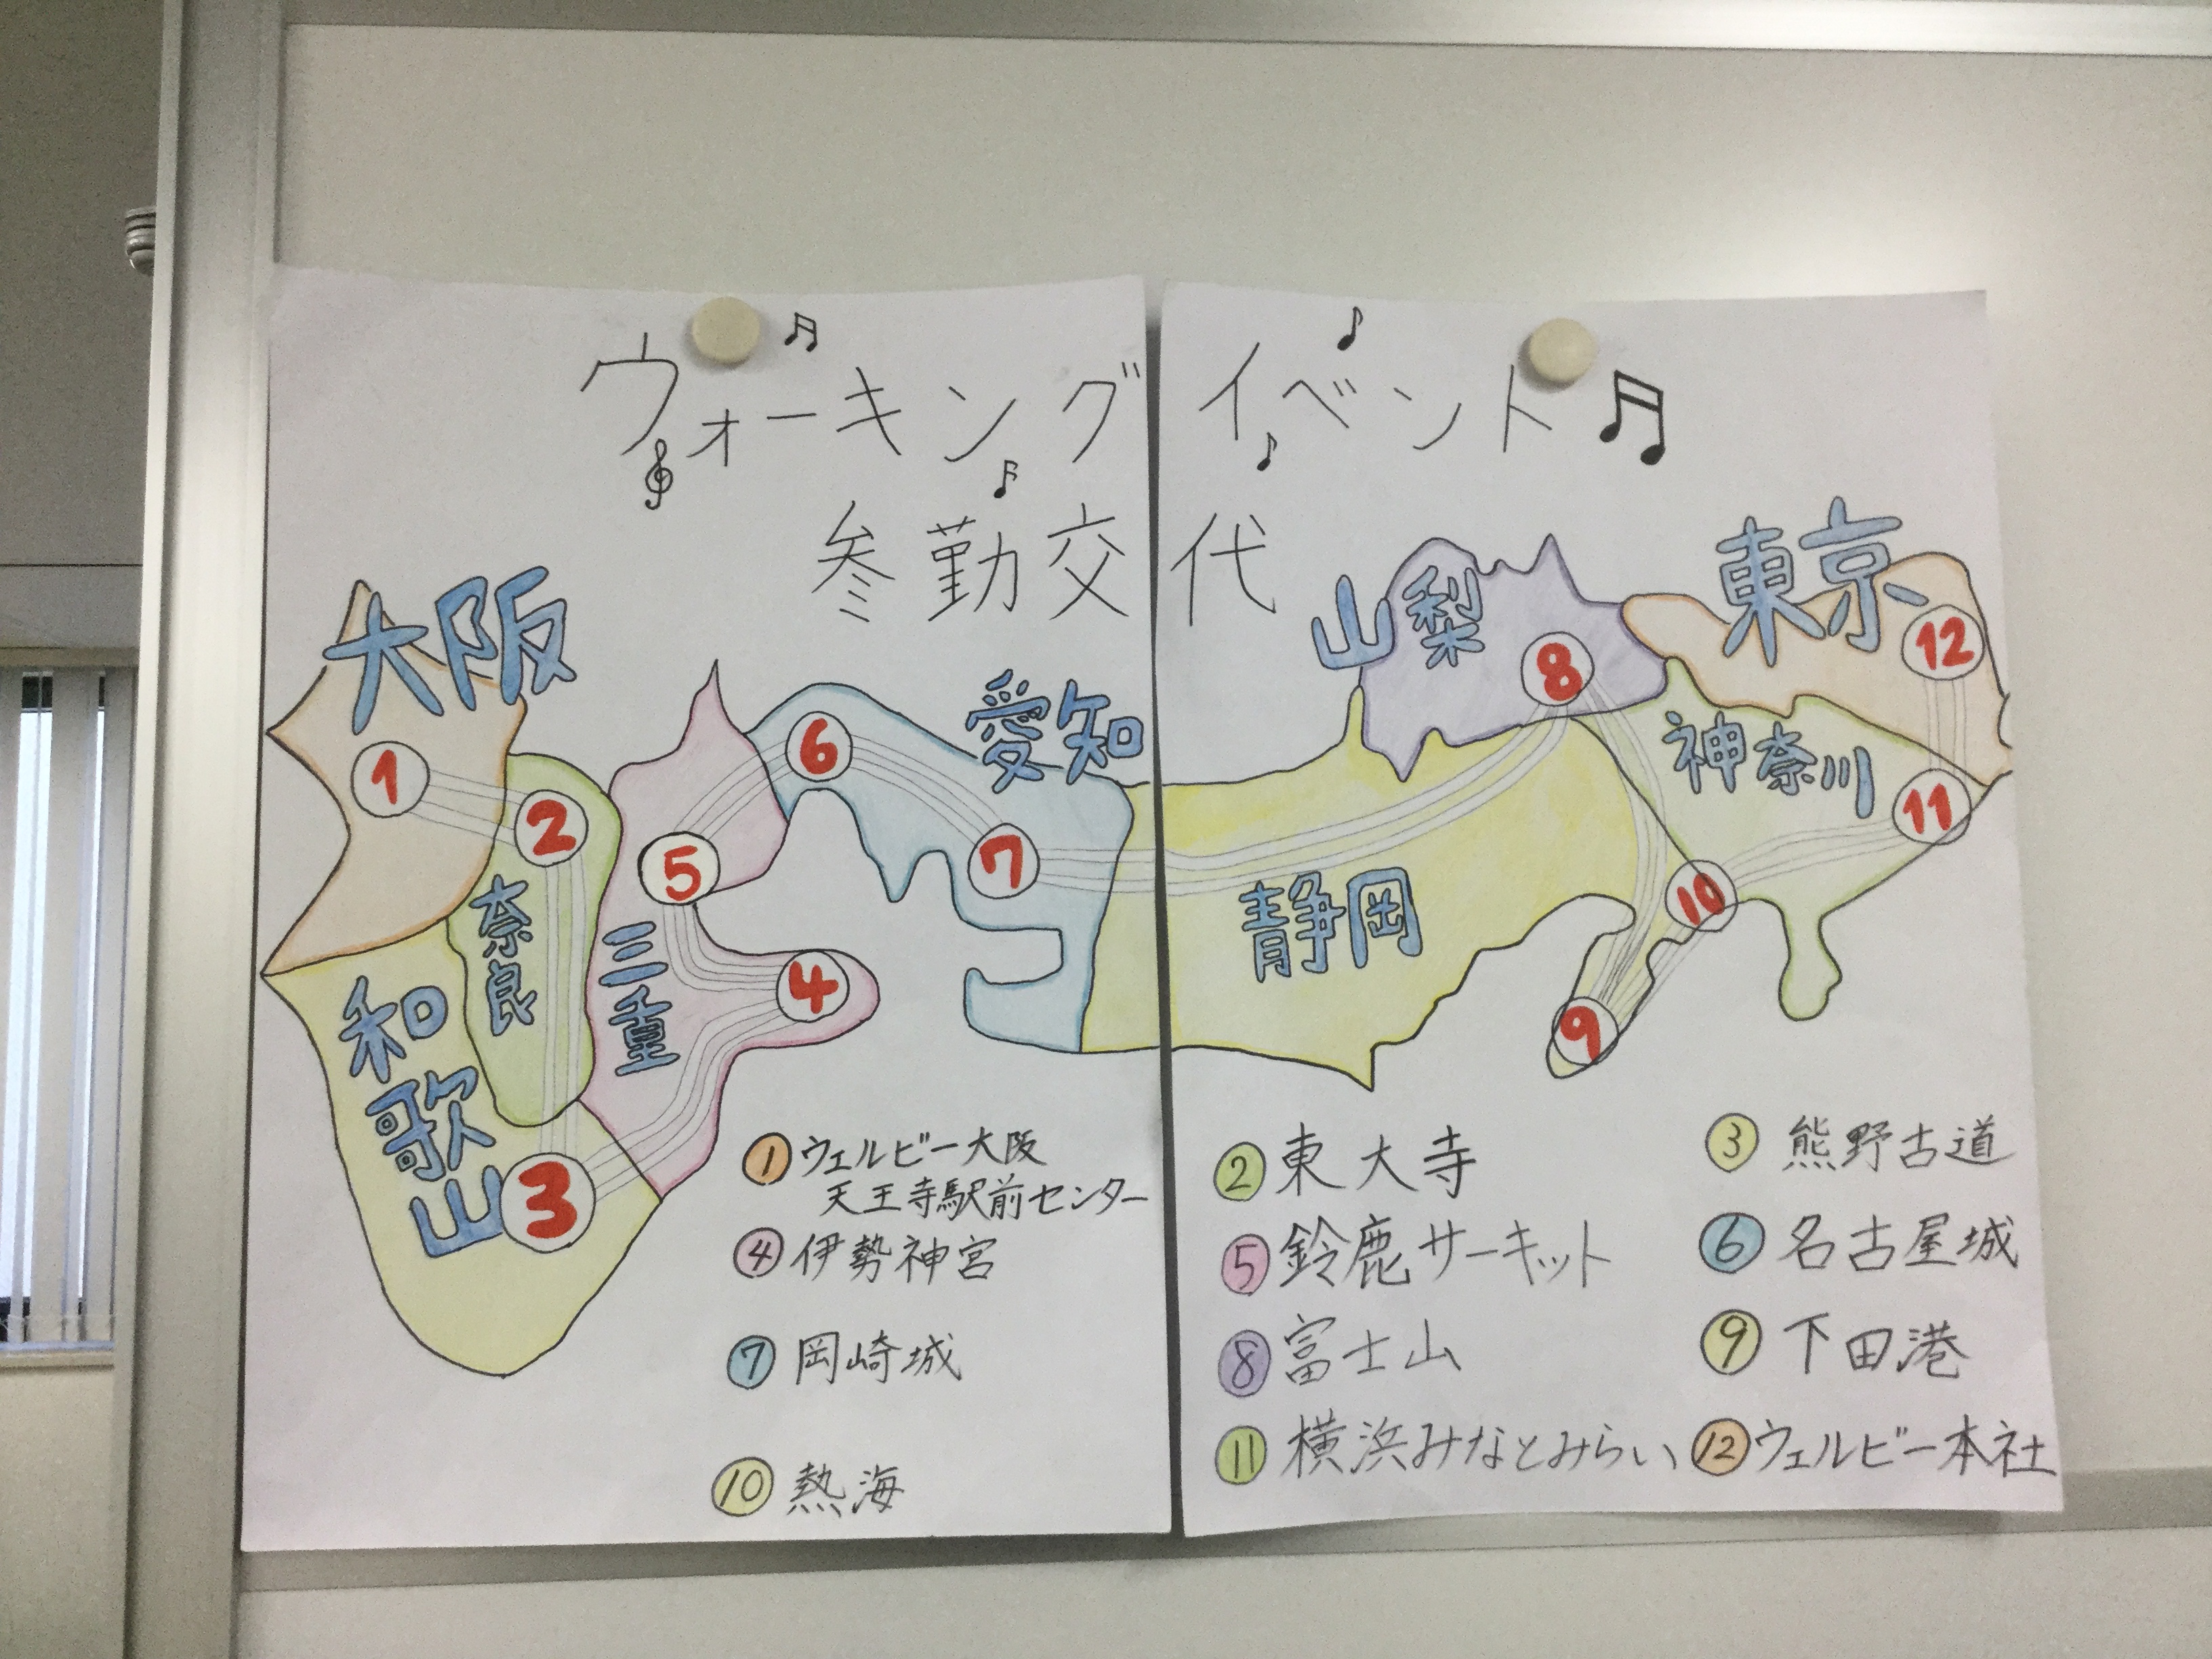 ウォーキングイベント
参勤交代
大阪
山梨
東京
愛知
神奈川
奈良
三重
静岡
和歌山
1
2
3
4
5
6
7
8
9
10
11
12
①ウェルビー大阪
天王寺駅前センター
②東大寺
③熊野古道
④伊勢神宮
⑤鈴鹿サーキット
⑥名古屋城
⑦岡崎城
⑧富士山
⑨下田港
⑩熱海
⑪横浜みなとみらい
⑫ウェルビー本社